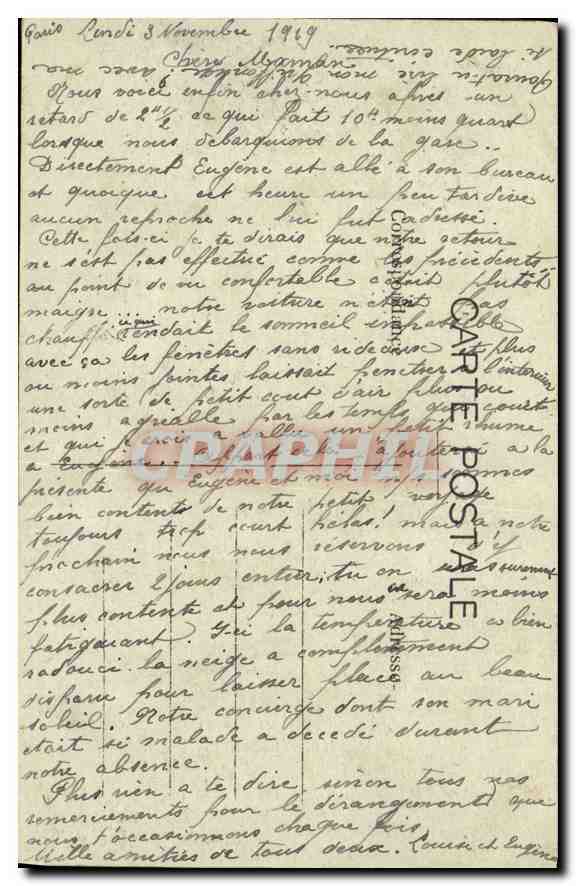 Paris Lundi 3 Novembre 1919
Chère Maman
Nous voici enfin chez-nous après un
retard de 2h 1/2 ce qui fait 10h moins quart
lorsque nous débarquions de la gare..
Directement Eugène est allé à son bureau
et quoique cet heure un peu tardive
aucun reproche ne lui fut adressé.
Cette fois-ci je te dirais que notre retour
ne s'est pas effectué comme les précédents
au point de vu confortable c'était plutôt
maigre... notre voiture n'était pas
chauffé ce qui rendait le sommeil impossible
avec ça les fenêtres sans rideaux et plus
ou moins jointes, laissait pénétrer à l'intérieur
une sorte de petit cout d'air plus ou
moins agréable par les temps qui court
et qui je crois a valu un petit rhume
a Eugène. A part cela j'ajouterai a la
présente qu'Eugène et moi nous sommes
bien contents de notre petit voyage
toujours trop court hélas! mais a notre
prochain nous nous réservons d'y
consacrer 2 jours entier, tu en seras surement
plus contente et pour nous ce sera moins
fatiguant. Ici la température a bien
radouci la neige a complètement
disparu pour laisser place au beau
soleil. Notre concierge dont son mari
était si malade a décédé durant
notre absence.
Plus rien a te dire sinon tous nos
remerciements pour le dérangement que
nous t'occasionnons chaque fois
Mille amitiés de tous deux. Louise et Eugène
Pourra-tu lire mon
si laide écriture.
CARTE POSTALE
Correspondance
Adresse
CPAPHIL